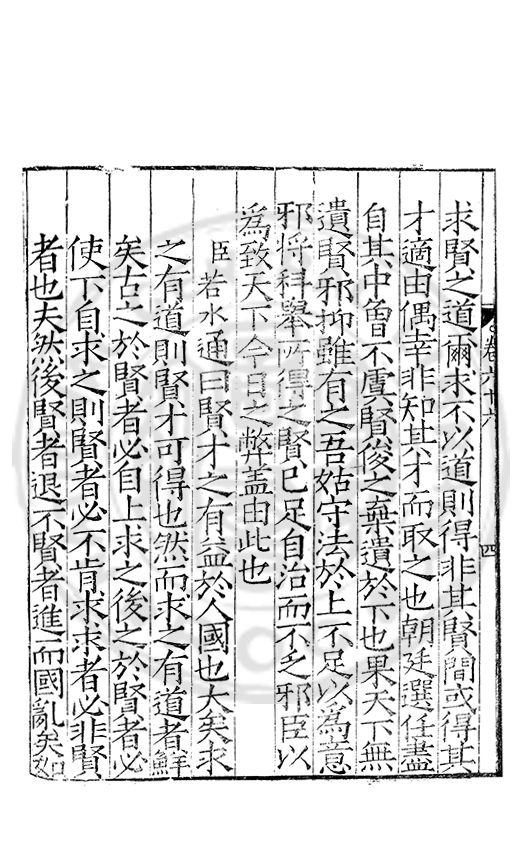 求賢之道爾求不以道則得非其賢間或得其
才適由偶幸非知其才而取之也朝廷選任盡
自其中曾不虞賢俊之棄遺於下也果天下無
遺賢邪抑雖有之吾姑守法於上不足以為意
邪將科舉所得之賢已足自治而不乏邪臣以
為致天下今日之弊盖由此也
臣若水通曰賢才之有益於人國也大矣求
之有道則賢才可得也然而求之有道者鮮
矣古之於賢者必自上求之後之於賢者必
使下自求之則賢者必不肯求求者必非賢
者也夫然後賢者退不賢者進而國亂矣如
卷六十六
四